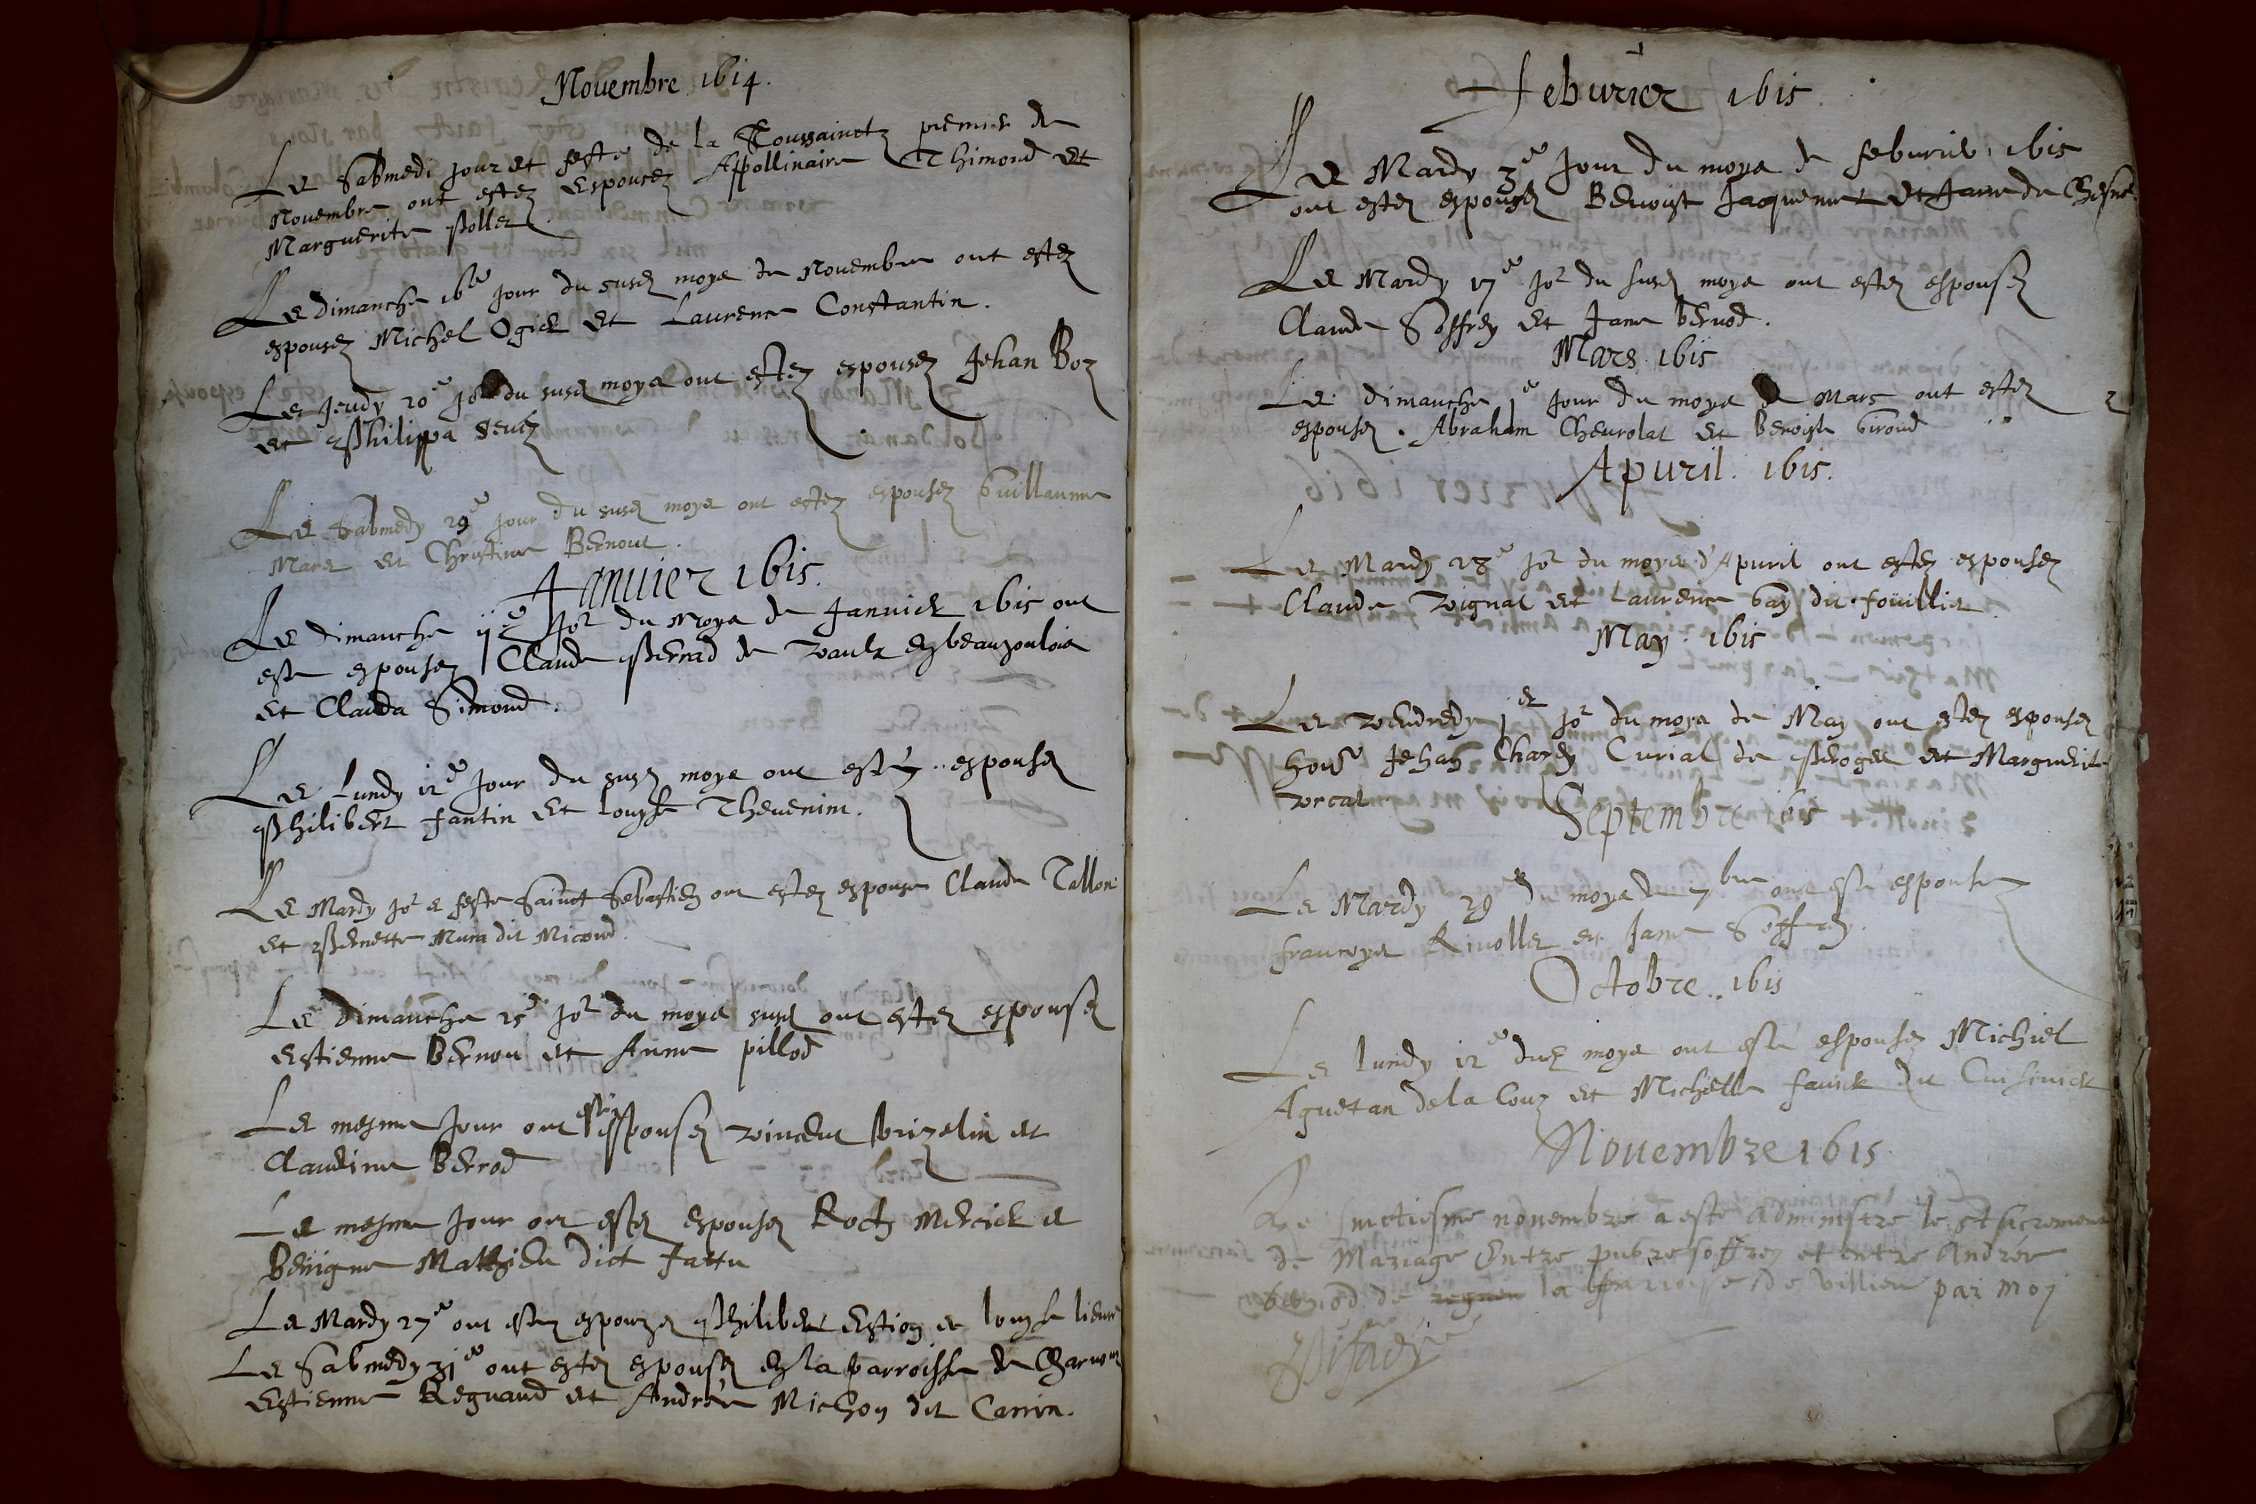 Nouembre 1614.
Le Sabmedi jour et feste de la Toussainctz premier de
Nouembre ont estez Espousez Appollinaire Thimond et
Marguerite Pollet
Le dimanche 16e jour du susd moys de Nouembre ont estez
espousez Michel Ogier et Laurence Constantin.
Le Jeudy 20e jor du susd moys ont estez espousez Jehan Boz
et Philippa
Le Sabmedy 29e jour du susd moys ont estez espousez Guillaume
Mare et Christine Bernout.
Januier 1615.
Le dimanche jor du moys de Januier 1615 ont
este espousez Claude Perrad de Vaulx en beaujoulois
et Clauda Simond.
Le Lundy 12e jour du susd moys ont estéz espousez
Philibert fantin et louyse Theuenin.
Le Mardy jor et feste Sainct Sebastien ont estez espouse Claude Tallon
et Pernette Mura dit Micoud.
Le Dimanche 25e jor du moys susd ont estez espousez
Estienne Bernou et Anne pillod
Le mesme jour ont esté espousez vincent brizelin et
Claudine Berrod
Le mesme jour ont estez espousez Roch Mercier et
Benigne Mathieu dict Jattu
Le Mardy 27e ont estez espousez Philibert Estion et louyse
Le Sabmedy 31e ont estez espousez en la parroisse de
Estienne Regnaud et Andrée Michon dit Carrin.
Feburier 1615
Le Mardy 3e jour du moys de feburier 1615
ont estez espousez Benoist Jaquemet et Jane du Chesne
Le Mardy 17e jor du susd moys ont estez espousez
Claude Soffrey et Jane bernod.
Mars 1615
Le dimanche 1e jour du moys de Mars ont estez
espousez. Abraham Cheurolat et Benoiste Giroud
Apuril. 1615.
Le Mardy 28e jor du moys d'Apuril ont estez espousez
Claude vignat et Laurence Gay dit fouillet
May 1615
Le vendredy 1er jor du moys de May ont estez espousez
honor Jehan Chardy Curial de Peroges et Marguerite
Septembre 1615
Le Mardy 29e du moys de 7bre ont esté espousez
francoys Riuollet et Jane Soffrey.
Octobre. 1615
Le lundy 12e dud moys ont esté espousez Michiel
Aguetan de la Couz et Michelle fauier dit Cuisinier
Nouembre 1615
Le nouembre a esté administré le St sacrement
de Mariage Entre soffrey et entre Andrée
de la parroisse de villieu par moy